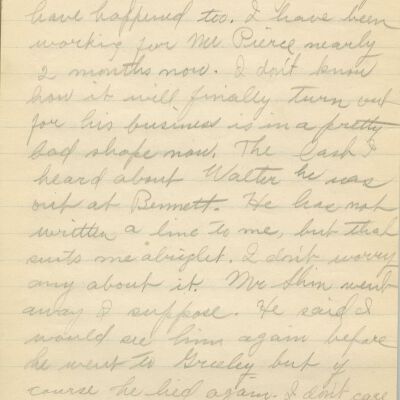 have happened too. I have been
working for Mr Pierce nearly
2 months now. I don't know
how it will finally turn out
for his business is in a pretty
bad shape now. The last I
heard about Walter he was
out at Bennett. He has not
written a line to me, but that
suits me alright. I don't worry
any about it. Mr Shin went
away I suppose. He said I
would see him again before
he went to Greeley but of
course he lied again. I don't care